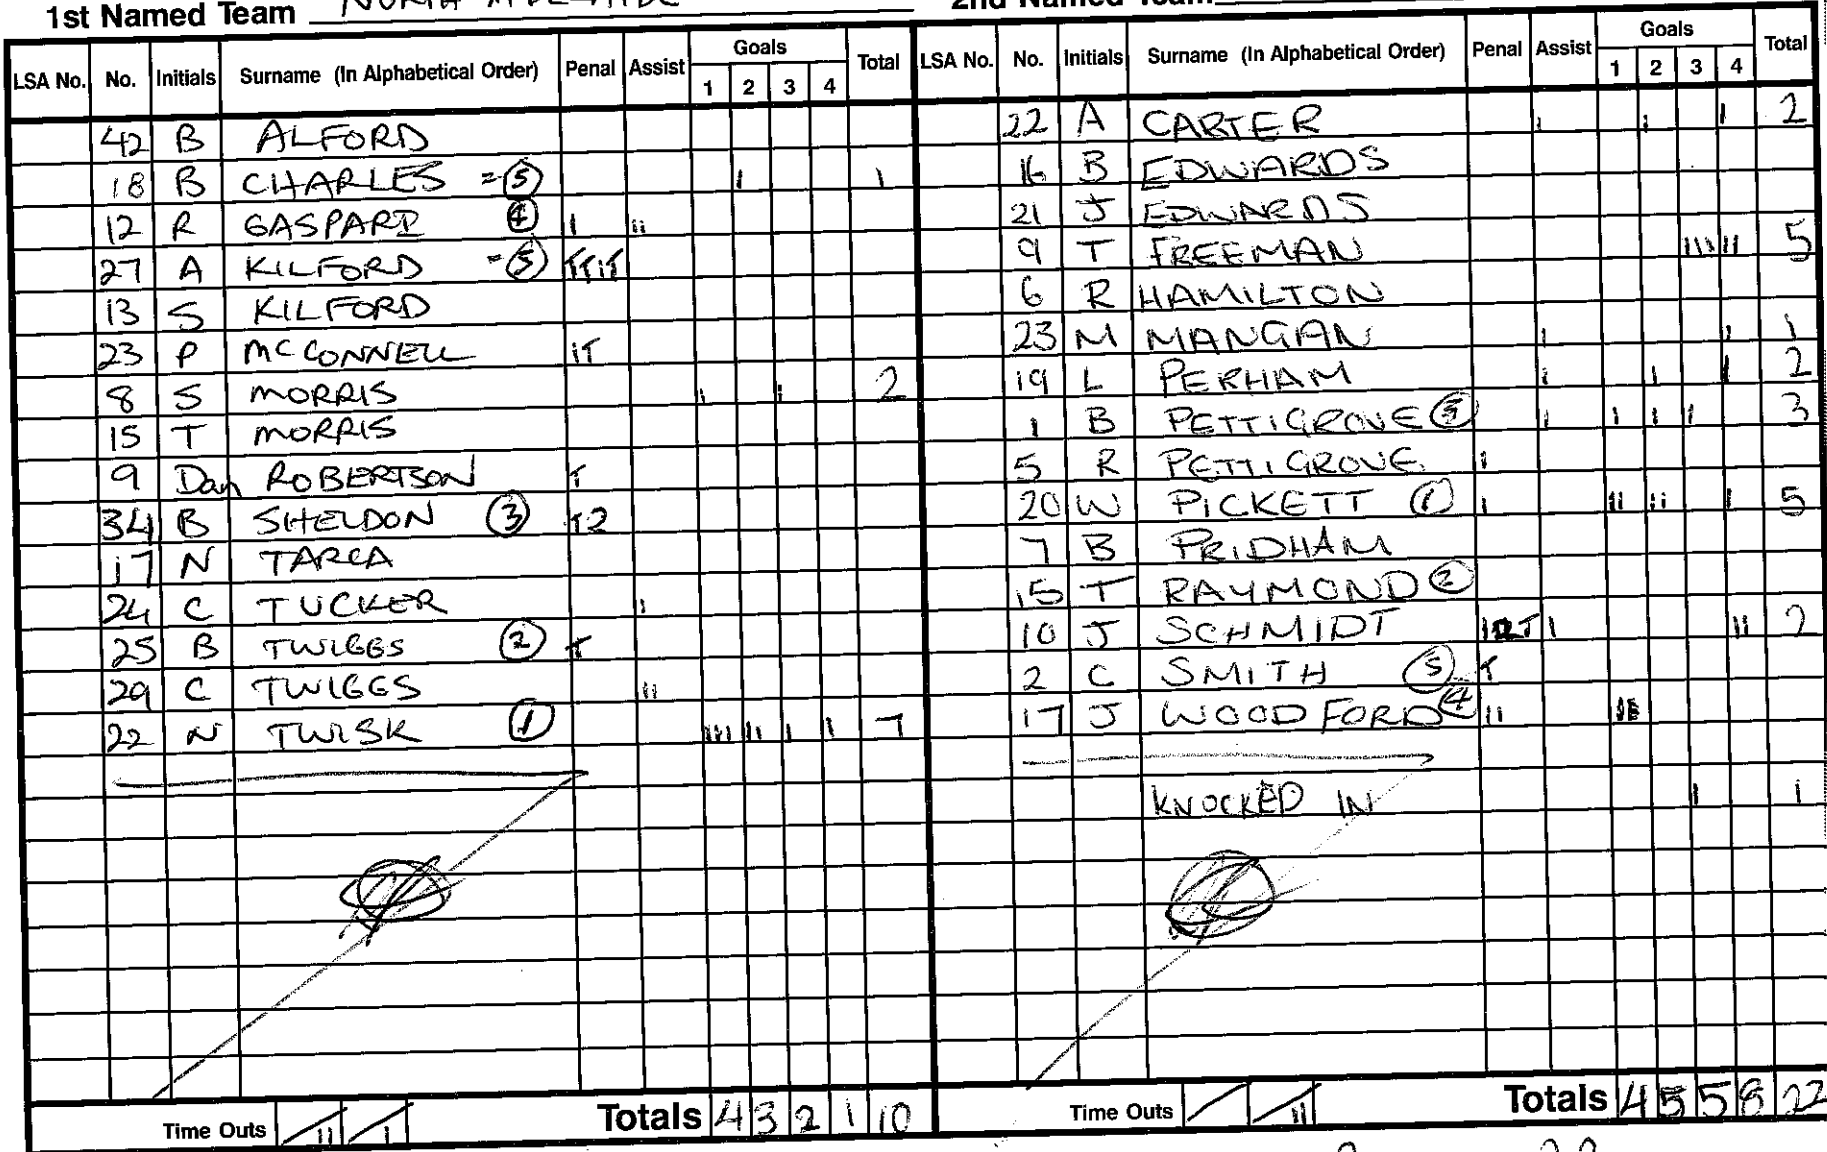 1st Named Team NORTH ADELAIDE
2nd Named Team
LSA No. No. Initials Surname (In Alphabetical Order) Penal Assist Goals 1 2 3 4 Total
42 B ALFORD
18 B CHARLES =(5) 1 1
12 R GASPARI (4) 1 11
27 A KILFORD =(5) TTIT
13 S KILFORD
23 P MCCONNELL IT
8 S MORRIS 1 1 2
15 T MORRIS
9 Dan ROBERTSON T
34 B SHELDON (3) T2
17 N TARCA
24 C TUCKER 1
25 B TWIGGS (2) T
29 C TWIGGS 11
22 N TWISK (1) 111 11 1 1 7
Time Outs 11 1 Totals 4 3 2 1 10
LSA No. No. Initials Surname (In Alphabetical Order) Penal Assist Goals 1 2 3 4 Total
22 A CARTER 1 1 1 2
16 B EDWARDS
21 J EDWARDS
9 T FREEMAN 111 11 5
6 R HAMILTON
23 M MANGAN 1 1 1
19 L PERHAM 1 1 1 2
1 B PETTIGROVE 1 1 1 1 3
5 R PETTIGROVE 1
20 W PICKETT (1) 1 11 11 1 5
7 B PRIDHAM
15 T RAYMOND (2)
10 J SCHMIDT 1 11 2
2 C SMITH (5) T
17 J WOODFORD (4) 11
KNOCKED IN 1 1
Time Outs 11 Totals 4 5 5 8 22